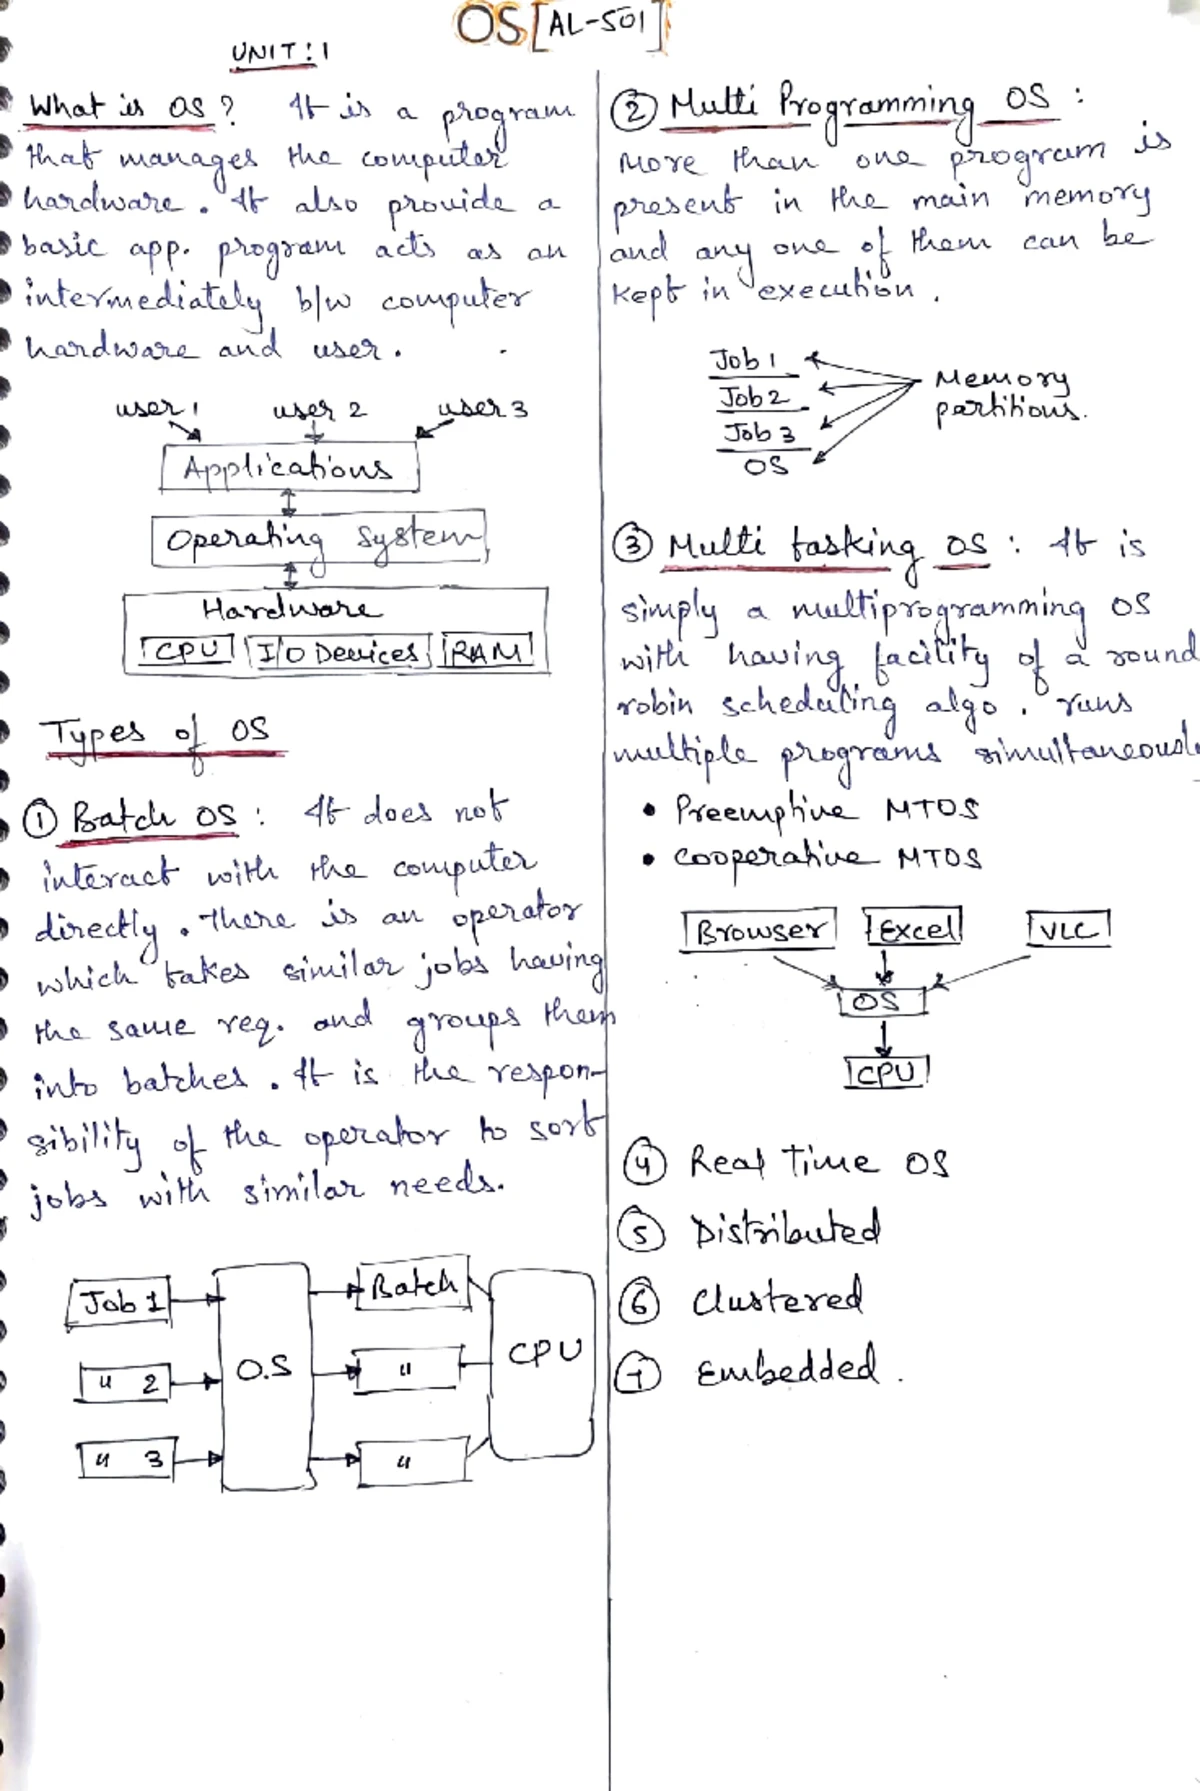 OS [AL-501]
UNIT : 1
What is OS ? It is a program
that manages the computer
hardware. It also provide a
basic app. program acts as an
intermediately b/w computer
hardware and user.
user 1 user 2 user 3
Applications
Operating System
Hardware
CPU I/O Devices RAM
Types of OS
① Batch OS : It does not
interact with the computer
directly. There is an operator
which takes similar jobs having
the same req. and groups them
into batches. It is the respon-
sibility of the operator to sort
jobs with similar needs.
Job 1 Batch
O.S CPU
" 2 "
" 3 "
② Multi Programming OS :
More than one program is
present in the main memory
and any one of them can be
kept in execution.
Job 1
Job 2
Job 3
OS
Memory
partitions.
③ Multi tasking OS : It is
simply a multiprogramming OS
with having facility of a round
robin scheduling algo. runs
multiple programs simultaneousl
• Preemptive MTOS
• Cooperative MTOS
Browser Excel VLC
OS
CPU
④ Real Time OS
⑤ Distributed
⑥ Clustered
⑦ Embedded.